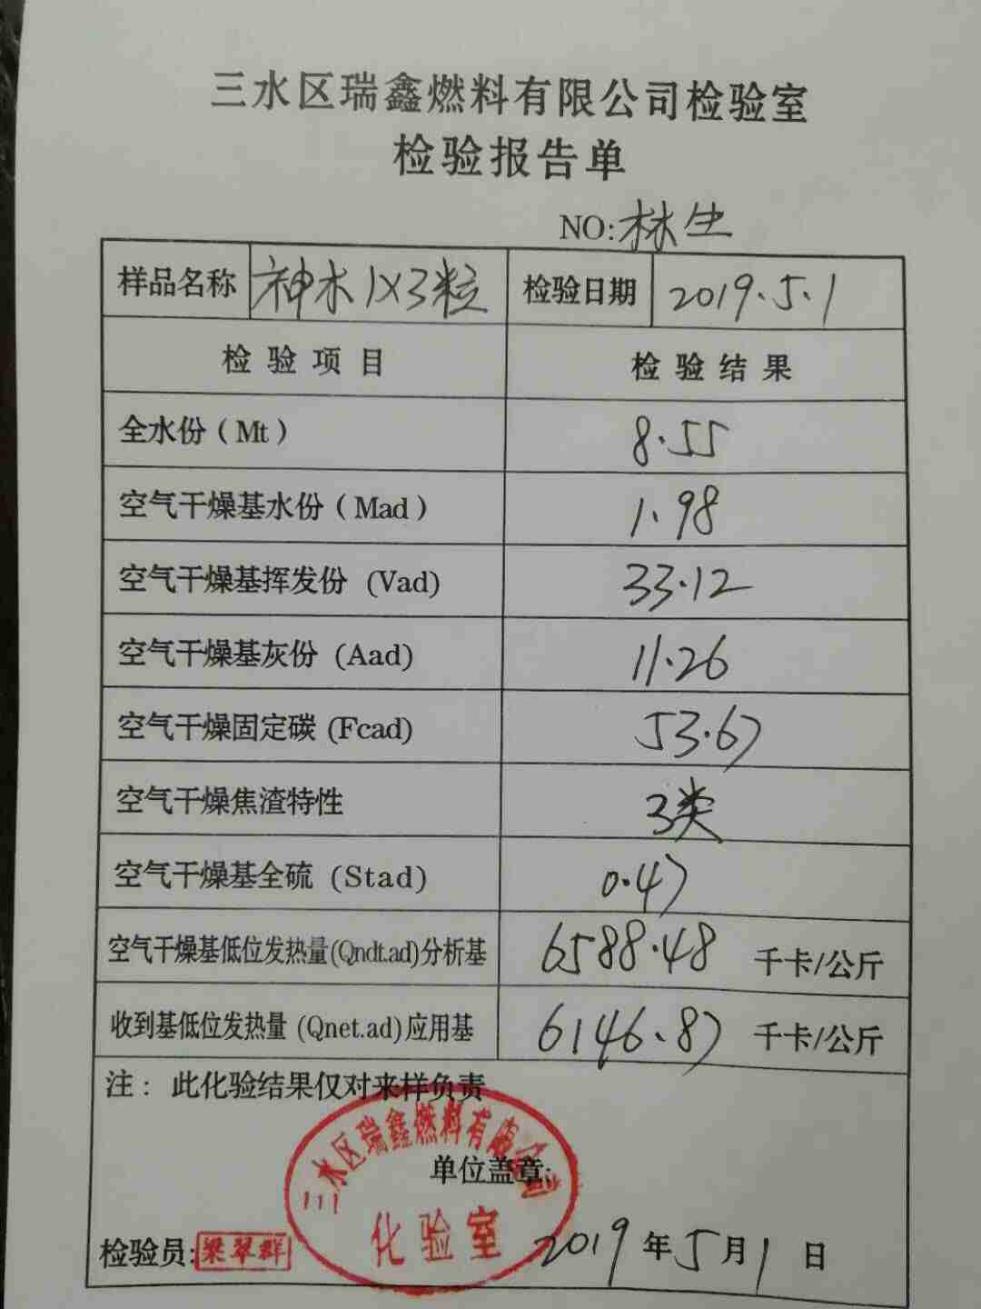 三水区瑞鑫燃料有限公司检验室
检验报告单
NO:林生
样品名称 神木1X3粒 检验日期 2019.5.1
检验项目 检验结果
全水份(Mt) 8.55
空气干燥基水份(Mad) 1.98
空气干燥基挥发份 (Vad) 33.12
空气干燥基灰份 (Aad) 11.26
空气干燥固定碳 (Fcad) 53.67
空气干燥焦渣特性 3类
空气干燥基全硫 (Stad) 0.47
空气干燥基低位发热量(Qndt.ad)分析基 6588.48 千卡/公斤
收到基低位发热量 (Qnet.ad)应用基 6146.87 千卡/公斤
注：此化验结果仅对来样负责
三水区瑞鑫燃料有限公司
单位盖章:
化验室
检验员:梁翠群 2019年5月1日